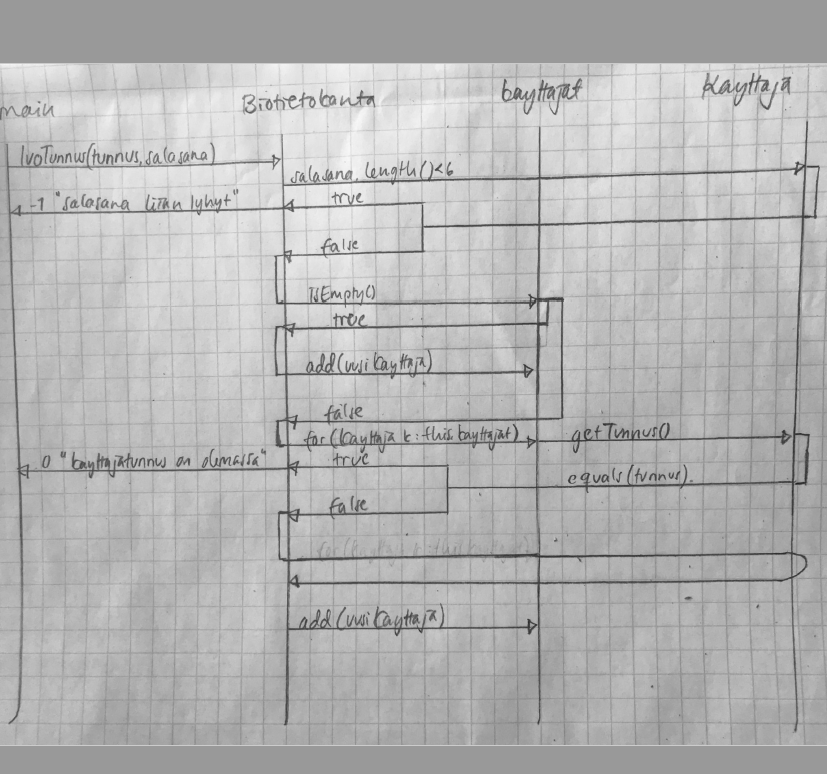 main
Biotietokanta
kayttajat
Kayttaja
luoTunnus(tunnus, salasana)
salasana.length()<6
true
-1 "salasana liian lyhyt"
false
isEmpty()
true
add(uusi kayttaja)
false
for(kayttaja k : this.kayttajat)
getTunnus()
true
0 "kayttajatunnus on olemassa"
equals(tunnus)
false
add(uusi kayttaja)